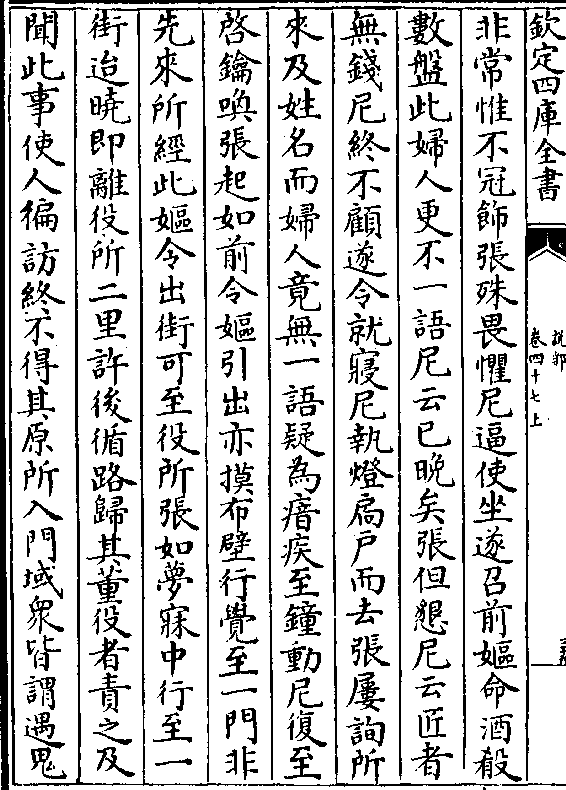 欽定四庫全書
說郛
卷四十七上
非常惟不冠飾張殊畏懼尼逼使坐遂召前嫗命酒殽
數盤此婦人更不一語尼云已晚矣張但懇尼云匠者
無錢尼終不顧遂令就寢尼執燈扄戸而去張屢詢所
來及姓名而婦人竟無一語疑為瘖疾至鐘動尼復至
啓鑰喚張起如前令嫗引出亦摸布壁行覺至一門非
先來所經此嫗令出街可至役所張如夢寐中行至一
街迨曉即離役所二里許後循路歸其董役者責之及
聞此事使人徧訪終不得其原所入門域衆皆謂遇鬼